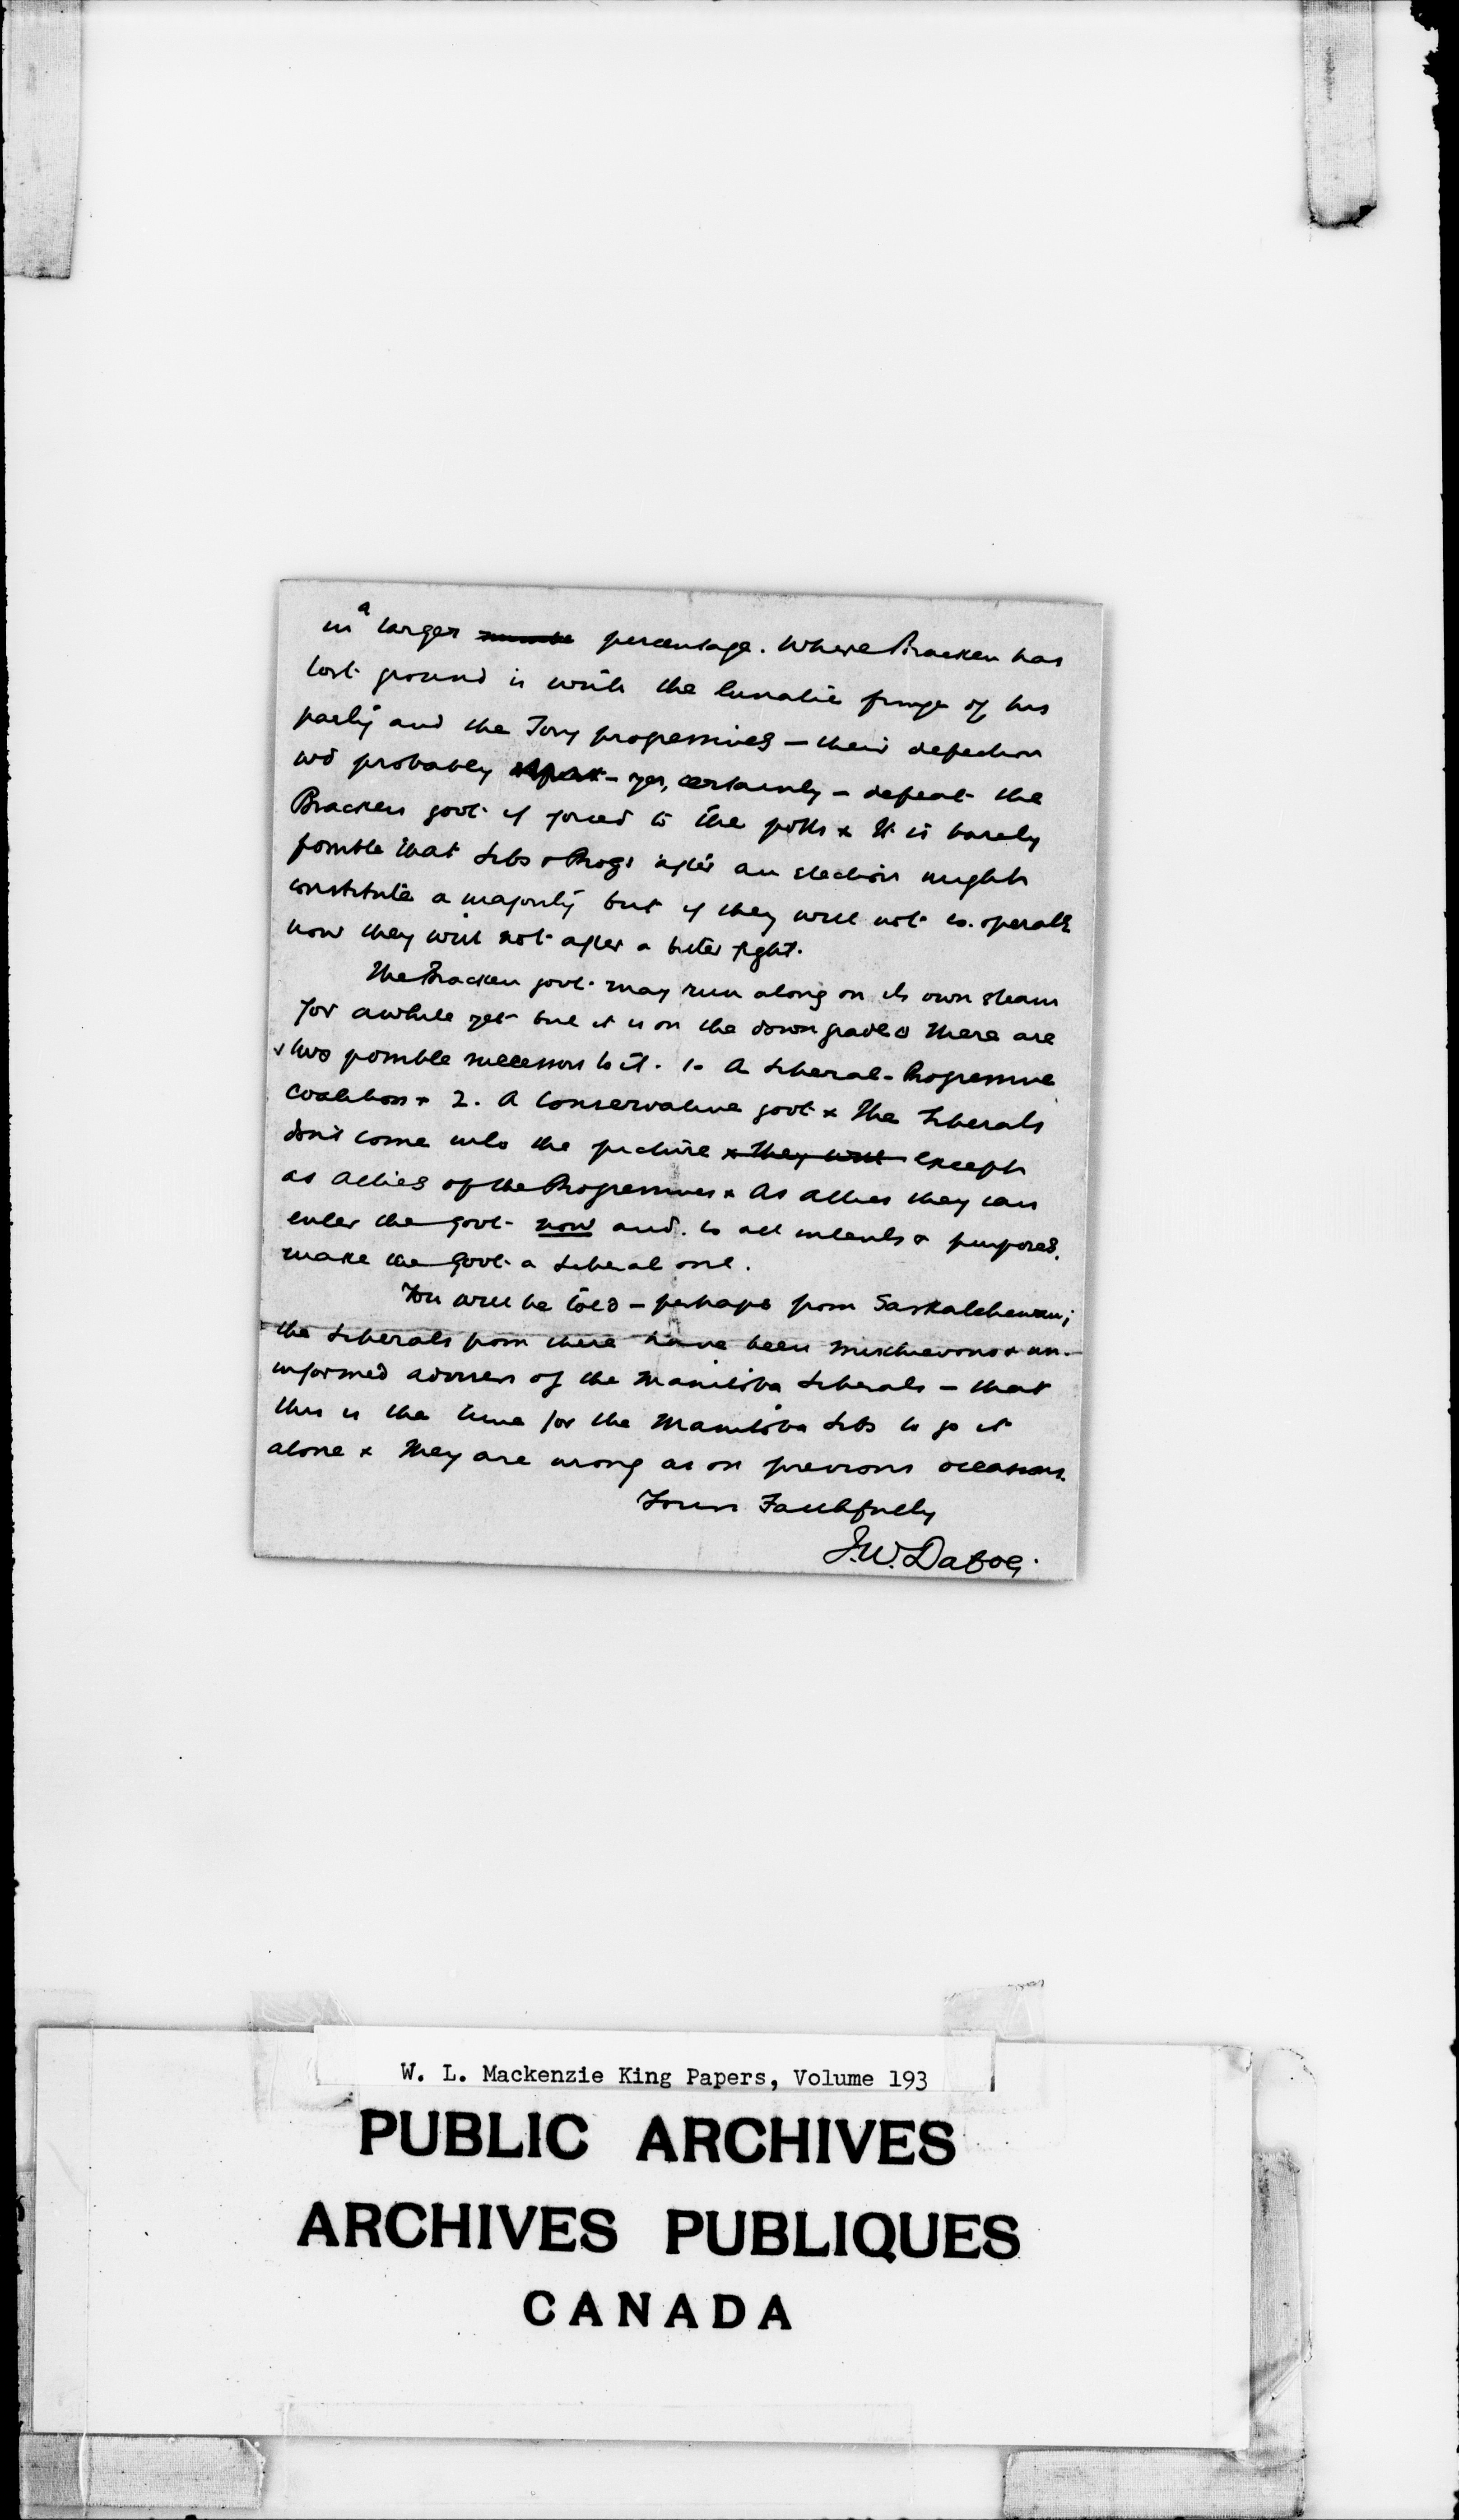 in a larger percentage. Where Bracken has
lost ground is with the lunatic fringe of his
party and the Tory progressives — their defection
wd probably — yes, certainly — defeat the
Bracken govt. if forced to the polls x It is barely
possible that Libs & Progs after an election might
constitute a majority but if they will not co.operate
now they will not after a bitter fight.
The Bracken govt. may run along on its own steam
for awhile yet but it is on the down grade x There are
two possible successors to it. 1. A Liberal-Progressive
Coalition x 2. A Conservative govt x The Liberals
don't come into the picture x they will except
as allies of the Progressives x As allies they can
enter the govt. now and to all intents & purposes
make the Govt. a Liberal one.
You will be told — perhaps from Saskatchewan;
the Liberals from there have been mischievous & un-
informed advisers of the Manitoba Liberals — that
this is the time for the Manitoba Libs to go it
alone x They are wrong as on previous occasions.
Yours Faithfully
J.W. Dafoe.
W. L. Mackenzie King Papers, Volume 193
PUBLIC ARCHIVES
ARCHIVES PUBLIQUES
CANADA